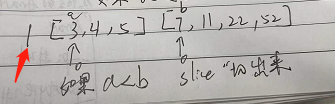 a b
1 [3,4,5] [7,11,22,52]
0 0
如果 a<b slice "切出来